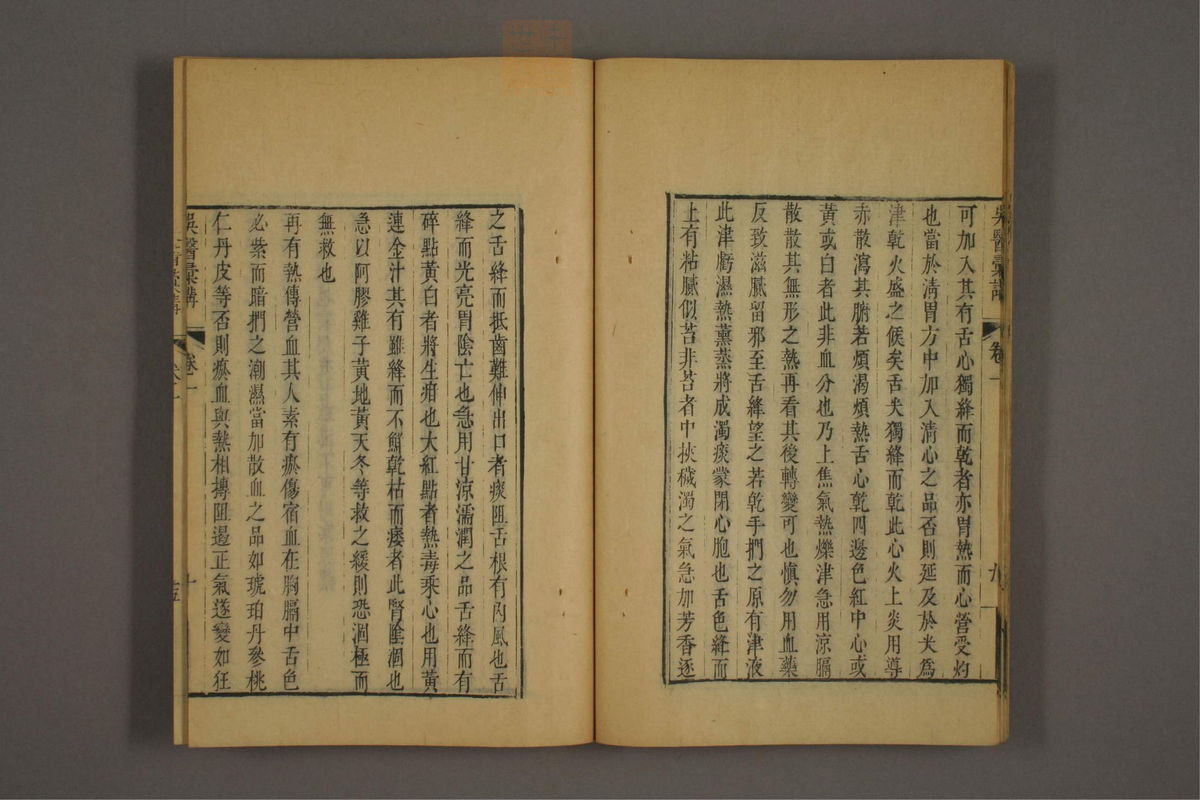 吳醫彙講
卷一
九
可加入其有舌心獨絳而乾者亦胃熱而心營受灼
也當於清胃方中加入清心之品否則延及於尖為
津乾火盛之候矣舌尖獨絳而乾此心火上炎用導
赤散瀉其腑若煩渴煩熱舌心乾四邊色紅中心或
黃或白者此非血分也乃上焦氣熱爍津急用涼膈
散散其無形之熱再看其後轉變可也慎勿用血藥
反致滋膩留邪至舌絳望之若乾手捫之原有津液
此津虧濕熱薰蒸將成濁痰蒙閉心胞也舌色絳而
上有粘膩似苔非苔者中挾穢濁之氣急加芳香逐
之舌絳而抵齒難伸出口者痰阻舌根有內風也舌
絳而光亮胃陰亡也急用甘涼濡潤之品舌絳而有
碎點黃白者將生疳也大紅點者熱毒乘心也用黃
連金汁其有雖絳而不鮮乾枯而痿者此腎陰涸也
急以阿膠雞子黃地黃天冬等救之緩則恐涸極而
無救也
再有熱傳營血其人素有瘀傷宿血在胸膈中舌色
必紫而暗捫之潮濕當加散血之品如琥珀丹參桃
仁丹皮等否則瘀血與熱相搏阻遏正氣遂變如狂
吳醫彙講
卷一
十